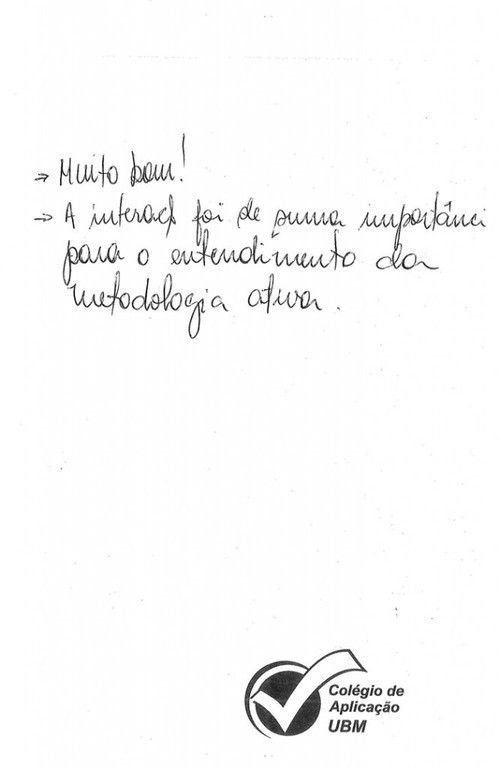 → Muito bom!
→ A interação foi de suma importânci
para o entendimento da
metodologia ativa.
Colégio de
Aplicação
UBM